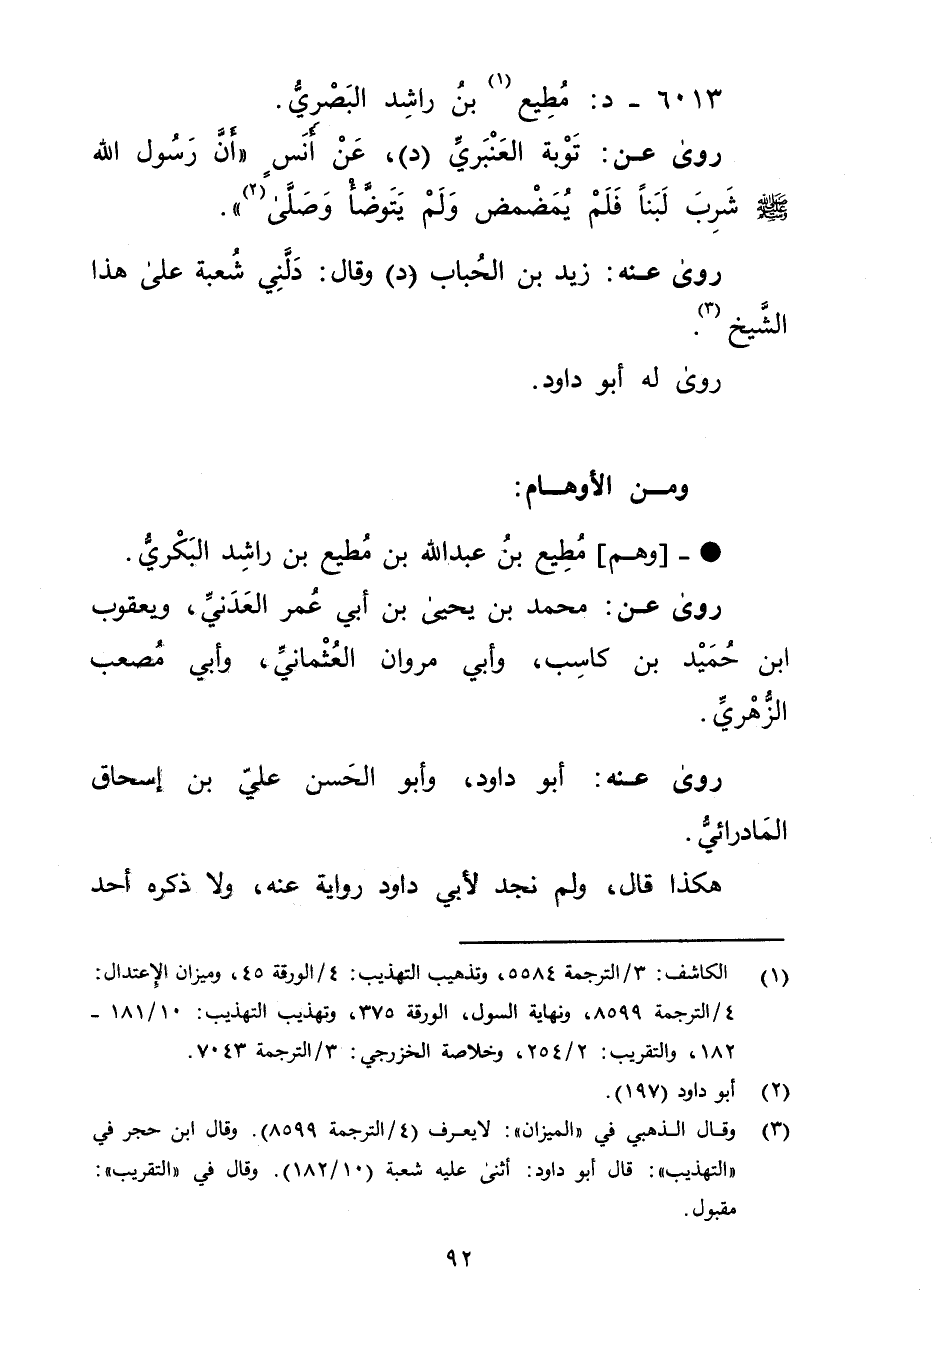 ٦٠١٣ - د: مُطِيع(١) بنُ راشِد البَصْرِيُّ.
روىٰ عـن: تَوْبة العَنْبَريِّ (د)، عَنْ أَنَسٍ «أَنَّ رَسُول الله
ﷺ شَرِبَ لَبَناً فَلَمْ يُمَضْمض وَلَمْ يَتَوضَّأْ وَصَلَّىٰ(٢)».
روىٰ عـنه: زيد بن الحُباب (د) وقال: دَلَّنِي شُعبة علىٰ هذا
الشَّيخ(٣).
روىٰ له أبو داود.
ومـن الأوهـام:
● - [وهـم] مُطِيع بنُ عبدالله بن مُطيع بن راشِد البَكْريُّ.
روىٰ عـن: محمد بن يحيىٰ بن أبي عُمر العَدَنيِّ، ويعقوب
ابن حُمَيْد بن كاسِب، وأبي مروان العُثْمانيِّ، وأبي مُصعب
الزُّهْريِّ.
روىٰ عـنه: أبو داود، وأبو الحَسن عليّ بن إسحاق
المَادرائيُّ.
هكذا قال، ولم نجد لأبي داود رواية عنه، ولا ذكره أحد
(١) الكاشف: ٣/الترجمة ٥٥٨٤، وتذهيب التهذيب: ٤/الورقة ٤٥، وميزان الإعتدال:
٤/الترجمة ٨٥٩٩، ونهاية السول، الورقة ٣٧٥، وتهذيب التهذيب: ١٨١/١٠ -
١٨٢، والتقريب: ٢٥٤/٢، وخلاصة الخزرجي: ٣/الترجمة ٧٠٤٣.
(٢) أبو داود (١٩٧).
(٣) وقـال الـذهبي في «الميزان»: لايعـرف (٤/الترجمة ٨٥٩٩). وقال ابن حجر في
«التهذيب»: قال أبو داود: أثنىٰ عليه شعبة (١٨٢/١٠). وقال في «التقريب»:
مقبول.
٩٢